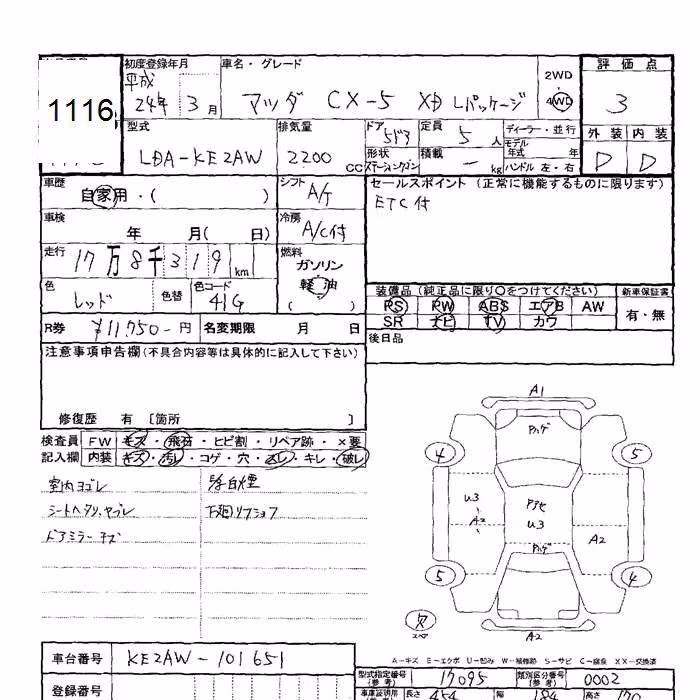 1116
初度登録年月
平成
24年 3月
車名・グレード
マツダ CX-5 XD Lパッケージ
2WD
4WD
評価点
3
外装 内装
D D
型式
LDA-KE2AW
排気量
2200
CC
ドア
5ドア
形状
ステーションワゴン
定員
5
人
積載
-
kg
ディーラー・並行
モデル
年式 年
ハンドル 左・右
車歴
自家用・( )
シフト
A/T
セールスポイント (正常に機能するものに限ります)
ETC付
車検
年 月( 日)
冷房
A/C付
走行
17万8千319
km
燃料
ガソリン
軽油
( )
色
レッド
色替
色コード
41G
装備品 (純正品に限り○をつけてください)
新車保証書
PS PW ABS エアB AW
SR ナビ TV カワ
有・無
R券 ¥11,750-円
名変期限 月 日
後日品
注意事項申告欄(不具合内容等は具体的に記入して下さい)
修復歴 有 [箇所 ]
検査員
記入欄
FW キズ・飛石・ヒビ割・リペア跡・×要
内装 キズ・汚レ・コゲ・穴・スレ・キレ・破レ
室内ヨゴレ
シートヘタリ、ヤブレ
ドアミラーキズ
下廻リフショク
A1
4
5
U3
A2
U3
A2
5
4
A2
A-キズ E-エクボ U-凹み W-補修跡 S-サビ C-腐食 XX-交換済
車台番号 KE2AW-101651
登録番号
型式指定番号
(参考)
17095
類別区分番号
(参考)
0002
長さ 454 幅 184 高さ 170